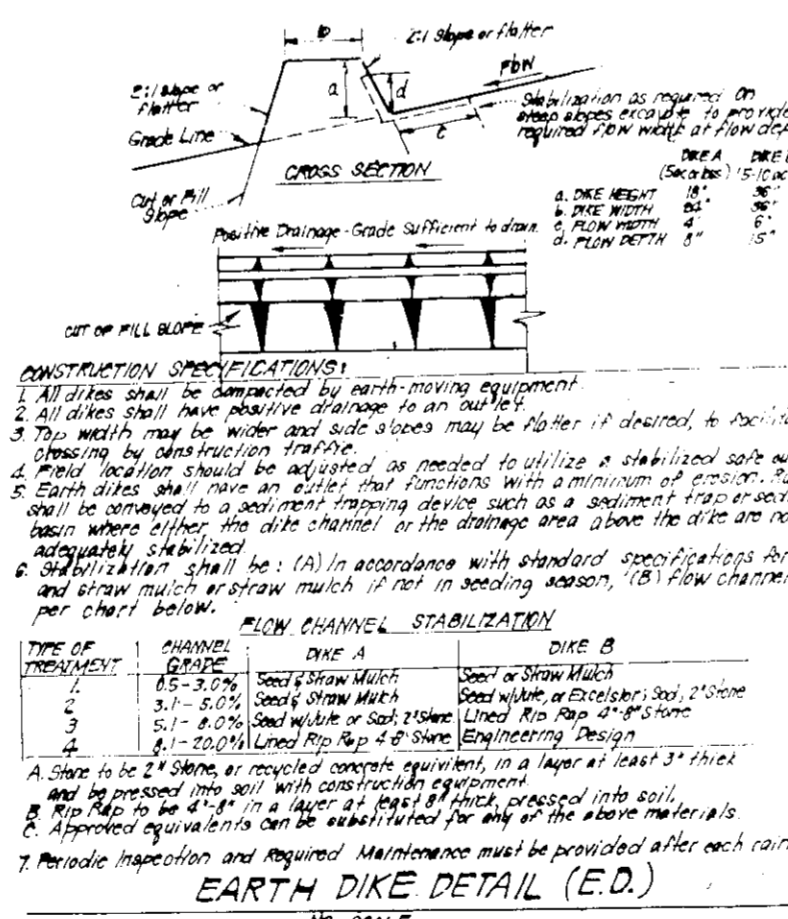 b
2:1 slope or flatter
Flow
2:1 slope or
flatter
a
d
Stabilization as required on
steep slopes excavate to provide
required flow width at flow dep
Grade Line
c
CROSS SECTION
Cut or Fill
Slope
DIKE A DIKE
(5ac or less) (5-10 ac
a. DIKE HEIGHT 18" 36"
b. DIKE WIDTH 24" 36"
c. FLOW WIDTH 4' 6'
d. FLOW DEPTH 8" 15"
Positive Drainage - Grade Sufficient to drain.
CUT OF FILL SLOPE
CONSTRUCTION SPECIFICATIONS:
1. All dikes shall be compacted by earth-moving equipment.
2. All dikes shall have positive drainage to an outlet.
3. Top width may be wider and side slopes may be flatter if desired, to facilita
crossing by construction traffic.
4. Field location should be adjusted as needed to utilize a stabilized safe ou
5. Earth dikes shall have an outlet that functions with a minimum of erosion. Ru
shall be conveyed to a sediment trapping device such as a sediment trap or sedi
basin where either the dike channel or the drainage area above the dike are no
adequately stabilized.
6. Stabilization shall be: (A) In accordance with standard specifications for
and straw mulch or straw mulch if not in seeding season, (B) flow channel
per chart below.
FLOW CHANNEL STABILIZATION
TYPE OF TREATMENT CHANNEL GRADE DIKE A DIKE B
1. 0.5-3.0% Seed & Straw Mulch Seed or Straw Mulch
2 3.1-5.0% Seed & Straw Mulch Seed w/Jute, or Excelsior; Sod; 2" Stone
3 5.1-8.0% Seed w/Jute or Sod; 2" Stone Lined Rip Rap 4"-8" Stone
4 8.1-20.0% Lined Rip Rap 4-8" Stone Engineering Design
A. Stone to be 2" Stone, or recycled concrete equivilent, in a layer at least 3" thick
and be pressed into soil with construction equipment.
B. Rip Rap to be 4"-8" in a layer at least 8" thick, pressed into soil.
C. Approved equivalents can be substituted for any of the above materials.
7. Periodic Inspection and Required Maintenance must be provided after each rain
EARTH DIKE DETAIL (E.D.)